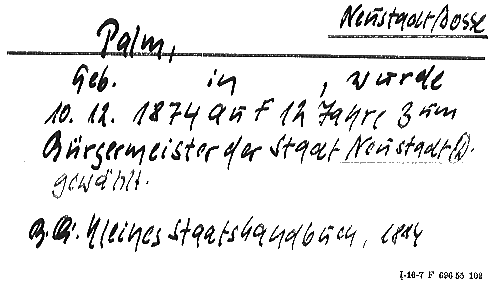 Neustadt/Dosse
Palm,
Geb. in , wurde
10. 12. 1874 auf 12 Jahre zum
Bürgermeister der Stadt Neustadt/D.
gewählt.
Kleines Staatshandbuch, 1884
I-16-7 F 696 55 102